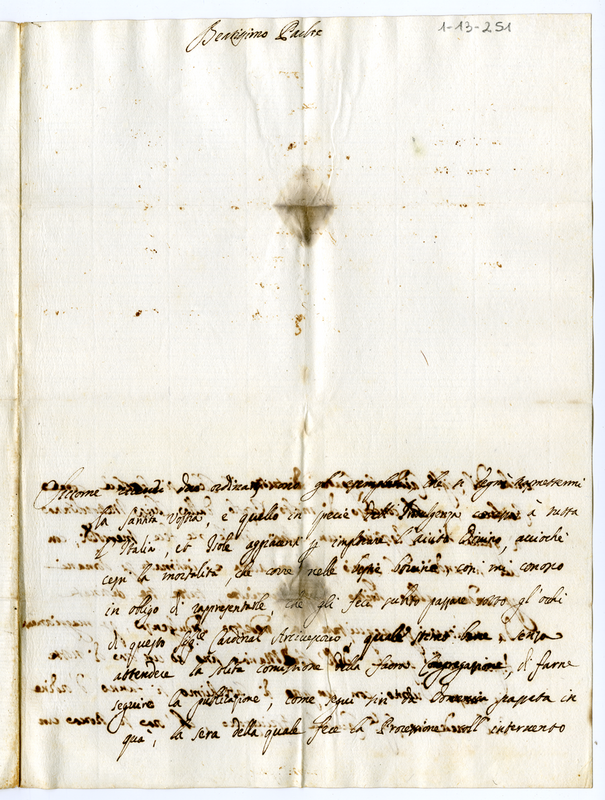 Beatissimo Padre
1-13-251
Siccome due gli esemplari che si degnò trasmettermi
la Santità Vostra, e quello in specie dell' Indulgenza concessa à tutta
l'Italia, et Isole aggiacenti p implorare l'aiuto Divino, acciochè
cessi la mortalità, che corre nelle bestie bovine, così mi conosco
in obligo di rappresentarle, che gli feci subito passare sotto gl'occhi
di questo Sig.r Cardinal Arcivescovo quale stimò bene, senza
attendere la solita comissione della Sacra Congregazione, di farne
seguire la publicazione, come seguì sin da Domenica passata in
quà, la sera della quale fece la Processione coll' intervento